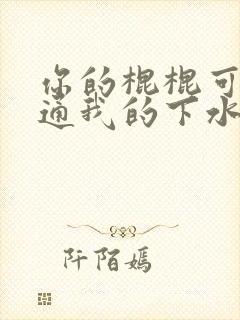 你的棍棍可
通我的下水
阡陌嫣